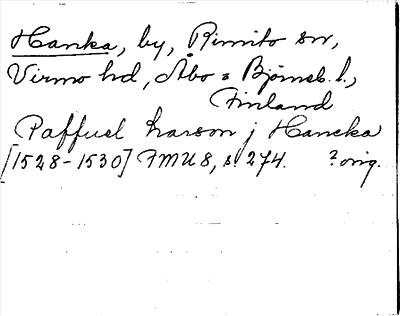 Hanka, by, Rimito sn,
Virmo hd, Åbo o Björneb. l.,
Finland
Paffuel Larson j Hancka
[1528-1530] FMU 8, s. 274. ? orig.